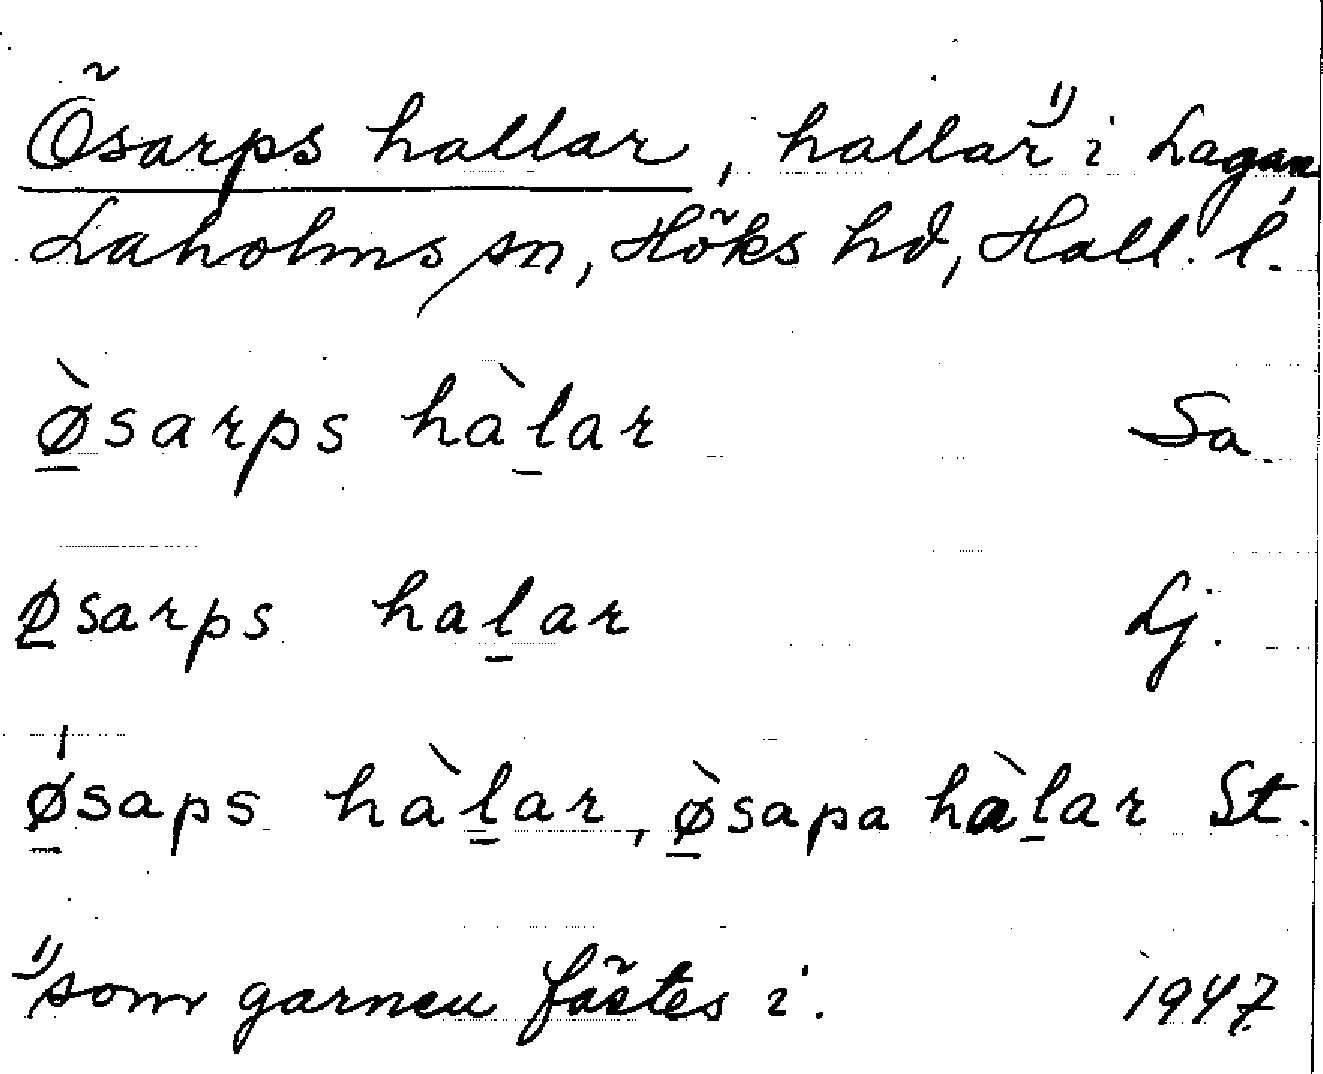 Ösarps hallar, hallar¹⁾ i Lagan,
Laholms sn, Höks hd, Hall. l.
ø̲̀sarps hàl̲ar Sa.
ø̲sarps hal̲ar Lj.
ǿ̲saps hàl̲ar, ø̲̀sapa hàl̲ar St.
¹⁾som garnen fästes i. 1947